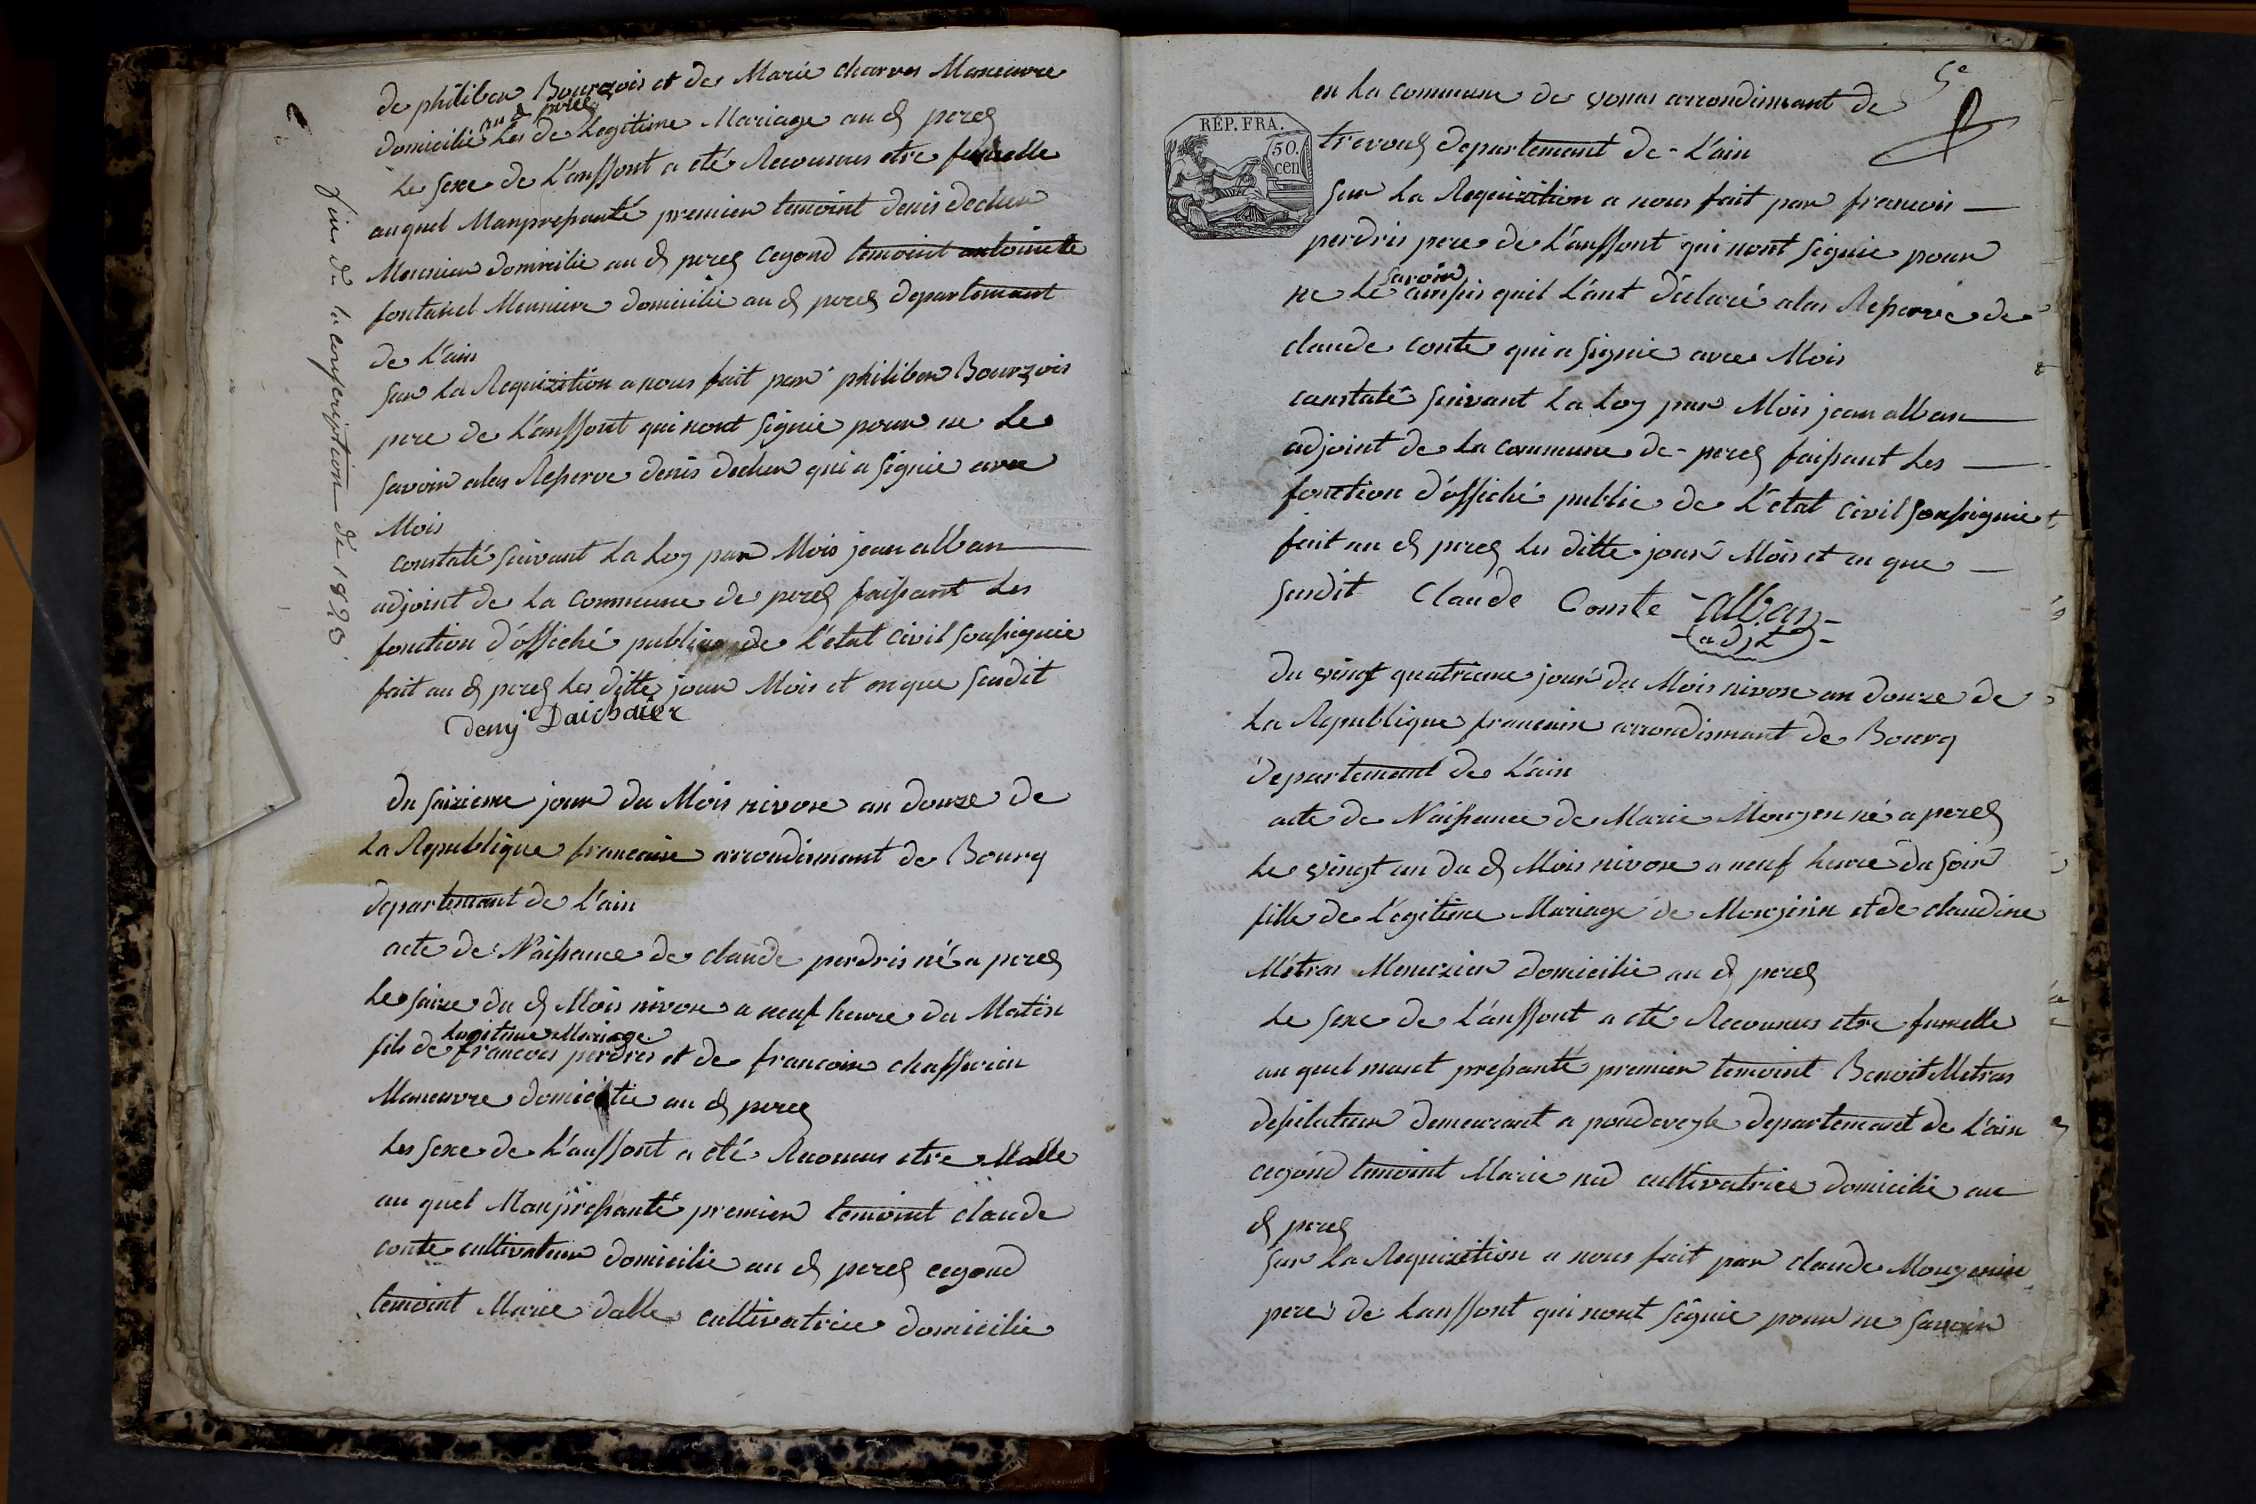 de philiber Bourgois et de Marie charves Maneuvre
au d peres
domicilié les de Legitime Mariage au d perex
Le sexe de L'anffont a eté Reconnus etre fumelle
auquel Manpresanté premier temoint denis decher
Meunier domicilie au d perex cegond temoint antoinete
fontanel Meuniere domicilie au d perex departemant
de L'ain
sur La Requizition a nous fait par philiber Bourgois
pere de L'anffont qui nont signie pour ne Le
savoir alas Reserve denis decher qui a signie avec
Mois
constaté suivant La Loy par Mois jean alban
adjoint de La Commune de perex faisant Les
fonction d'offiché publique de L'etat Civil sousignie
fait au d perex Les ditte jour Mois et en que susdit
Denj Daichaier
fin de la conscription de 1823
du saizieme jour du Mois nivose an douze de
La Republique francaise arrondismant de Bourg
departemant de L'ain
acte de Naissance de claude perdris né a perex
Le saize du d Mois nivose a neuf heure du Matin
Legitime Mariage
fils de francois perdris et de francoise
Maneuvre domicilie au d perex
Les sexe de L'anffont a eté Reconnus etre Malle
au quel Manpresanté premier temoint claude
conte cultivateur domicilie au d perex cegond
temoint Marie dalle cultivatrice domicilie
5e
en La commune de vonas arrondismant de
REP. FRA.
50.
cen
trevoux departemant de L'ain
sur La Requizition a nous fait par francois
perdris pere de L'anffont qui nont signie pour
savoir
ne Le ainsis quil L'ant déclaré alas Reserve de
claude conte qui a signie avec Mois
canstaté suivant La Loy par Mois jean alban
adjoint de La commune de perex faisant Les
fonction d'offiché public de L'etat Civil sousignie
fait au d perex Les ditte jour Mois et en que
susdit Claude Comte alban
adjt
du vingt quatrieme jour du Mois nivose an douze de
La Republique francaise arrondismant de Bourg
departemant de L'ain
acte de Naissance de Marie Mongen né a perex
Le vingt un du d Mois nivose a neuf heure du soir
fille de Légitime Mariage de Mongenin et de claudine
Métras Menuzier domicilie au d perex
Le sexe de L'anffont a eté Reconnus etre fumelle
au quel mant presanté premier temoint Benoit Metras
demeurant a pondeveyle departemant de L'ain
cegond temoint Marie nid cultivatrice domicilie au
d perex
sur La Requizition a nous fait par claude Mongenin
pere de Lanffont qui nont signie pour ne savoir